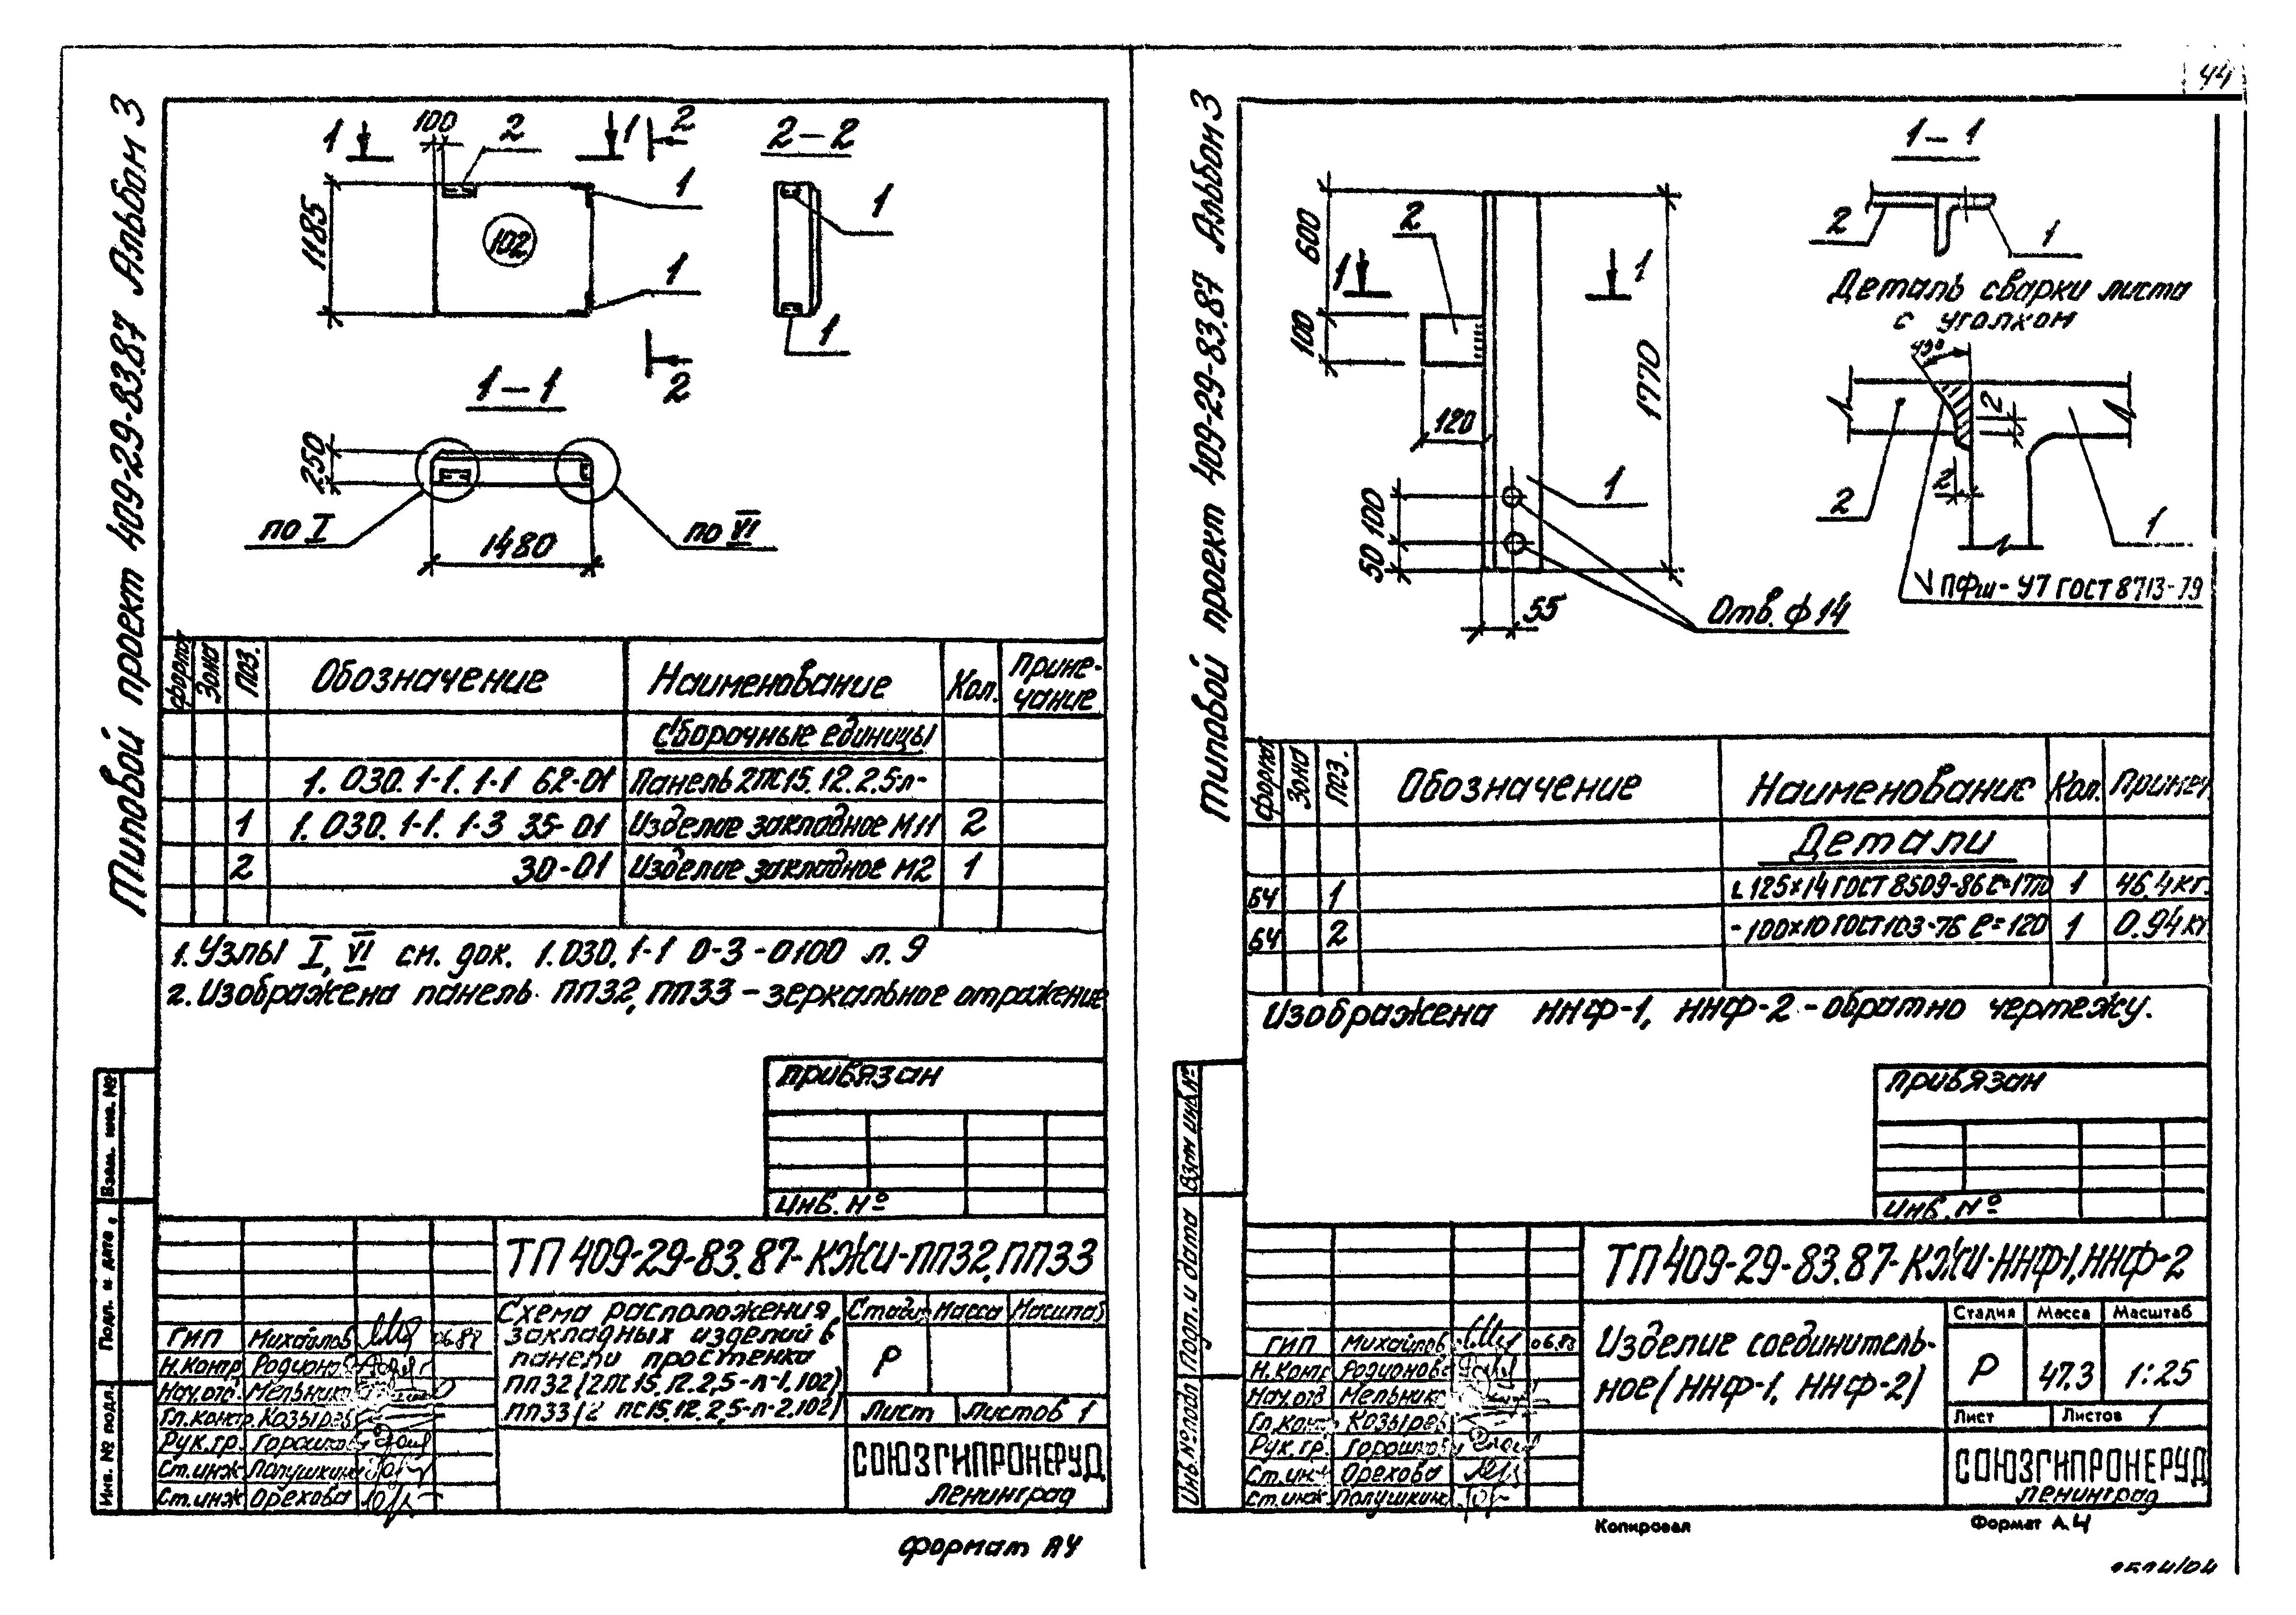 44
Типовой проект 409-29-83.87 Альбом 3
1
100
2
1
2
2-2
1185
102
1
1
1
1
2
1-1
250
по I
1480
по VI
Формат
Зона
Поз.
Обозначение
Наименование
Кол.
Приме-
чание
Сборочные единицы
1.030.1-1.1-1 62-01 Панель 2ПС15.12.2.5-л-
1 1.030.1-1.1-3 35-01 Изделие закладное М11 2
2 30-01 Изделие закладное М2 1
1. Узлы I, VI см. док. 1.030.1-1 0-3-0100 л. 9
2. Изображена панель ПП32, ПП33 - зеркальное отражение
Привязан
Инв. №
Взам. инв. №
Подп. и дата
Инв. № подл.
ТП 409-29-83.87-КЖИ-ПП32, ПП33
Схема расположения
закладных изделий в
панели простенка
ПП32 (2ПС15.12.2,5-л-1.102)
ПП33 (2ПС15.12.2,5-л-2.102)
Стадия Масса Масштаб
Р
Лист Листов 1
СОЮЗГИПРОНЕРУД
Ленинград
ГИП Михайлов 06.87
Н.контр Родионова
Нач.отд. Мельник
Гл.контр. Козырев
Рук.гр. Горошкова
Ст.инж Полушкина
Ст.инж Орехова
Формат А4
Типовой проект 409-29-83.87 Альбом 3
600
100
1
2
1
1770
120
100
50
1
55
Отв. ф 14
1-1
2
1
Деталь сварки листа
с уголком
2
2
2
1
ПФш-У7 ГОСТ 8713-79
Формат
Зона
Поз.
Обозначение
Наименование
Кол.
Примеч
Детали
БЧ 1 L 125×14 ГОСТ 8509-86 ℓ=1770 1 46.4 кг.
БЧ 2 -100×10 ГОСТ 103-76 ℓ=120 1 0.94 кг
Изображена ННФ-1, ННФ-2 - обратно чертежу.
Привязан
Инв. №
Взам инв. №
Подп. и дата
Инв. № подл
ТП 409-29-83.87-КЖИ-ННФ-1, ННФ-2
Изделие соединитель-
ное (ННФ-1, ННФ-2)
Стадия Масса Масштаб
Р 47.3 1:25
Лист Листов 1
СОЮЗГИПРОНЕРУД
Ленинград
ГИП Михайлов
Н.контр Родионова
Нач.отд Мельник
Гл.контр Козырев
Рук.гр. Горошкова
Ст.инж Орехова
Ст.инж Полушкина
Копировал
Формат А.4